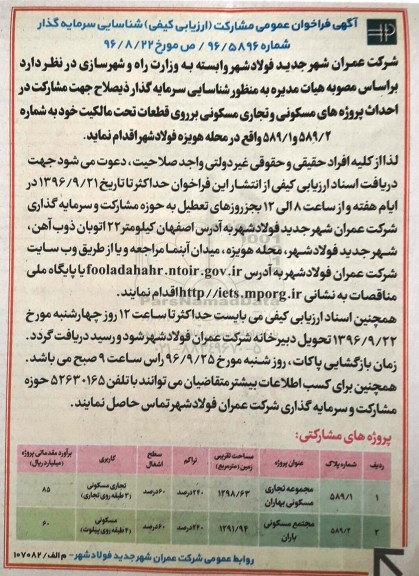 آگهی فراخوان عمومی مشارکت (ارزیابی کیفی) شناسایی سرمایه گذار
شماره ۹۶/۵۸۹۶ / ص مورخ ۹۶/۸/۲۲
شرکت عمران شهر جدید فولادشهر وابسته به وزارت راه و شهرسازی در نظر دارد
براساس مصوبه هیات مدیره به منظور شناسایی سرمایه گذار ذیصلاح جهت مشارکت در
احداث پروژه های مسکونی و تجاری مسکونی بر روی قطعات تحت مالکیت خود به شماره
۵۸۹/۲ و ۵۸۹/۱ واقع در محله هویزه فولادشهر اقدام نماید.
لذا از کلیه افراد حقیقی و حقوقی غیر دولتی واجد صلاحیت ، دعوت می شود جهت
دریافت اسناد ارزیابی کیفی از انتشار این فراخوان حداکثر تا تاریخ ۱۳۹۶/۹/۲۱ در
ایام هفته و از ساعت ۸ الی ۱۲ بجز روزهای تعطیل به حوزه مشارکت و سرمایه گذاری
شرکت عمران شهر جدید فولادشهر به آدرس اصفهان کیلومتر ۲۲ اتوبان ذوب آهن،
شهر جدید فولادشهر، محله هویزه، میدان آبنما مراجعه و یا از طریق وب سایت
شرکت عمران فولادشهر به آدرس fooladahahr.ntoir.gov.ir یا پایگاه ملی
مناقصات به نشانی http//iets.mporg.ir اقدام نمایند.
همچنین اسناد ارزیابی کیفی می بایست حداکثر تا ساعت ۱۲ روز چهارشنبه مورخ
۱۳۹۶/۹/۲۲ تحویل دبیرخانه شرکت عمران فولادشهر شود و رسید دریافت گردد.
زمان بازگشایی پاکات ، روز شنبه مورخ ۹۶/۹/۲۵ راس ساعت ۹ صبح می باشد.
همچنین برای کسب اطلاعات بیشتر متقاضیان می توانند با تلفن ۵۲۶۳۰۱۶۵ حوزه
مشارکت و سرمایه گذاری شرکت عمران فولادشهر تماس حاصل نمایند.
پروژه های مشارکتی:
ردیف شماره پلاک عنوان پروژه مساحت تقریبی زمین (مترمربع) تراکم سطح اشغال کاربری برآورد مقدماتی پروژه (میلیارد ریال)
۱ ۵۸۹/۱ مجموعه تجاری مسکونی بهاران ۱۳۹۸/۶۳ ۲۴۰درصد ۶۰درصد تجاری مسکونی (۳ طبقه روی تجاری) ۸۵
۲ ۵۸۹/۲ مجتمع مسکونی باران ۱۳۹۱/۹۴ ۲۴۰درصد ۶۰درصد مسکونی (۴ طبقه روی پیلوت) ۶۰
روابط عمومی شرکت عمران شهر جدید فولادشهر - م الف/ ۱۰۷۰۸۲